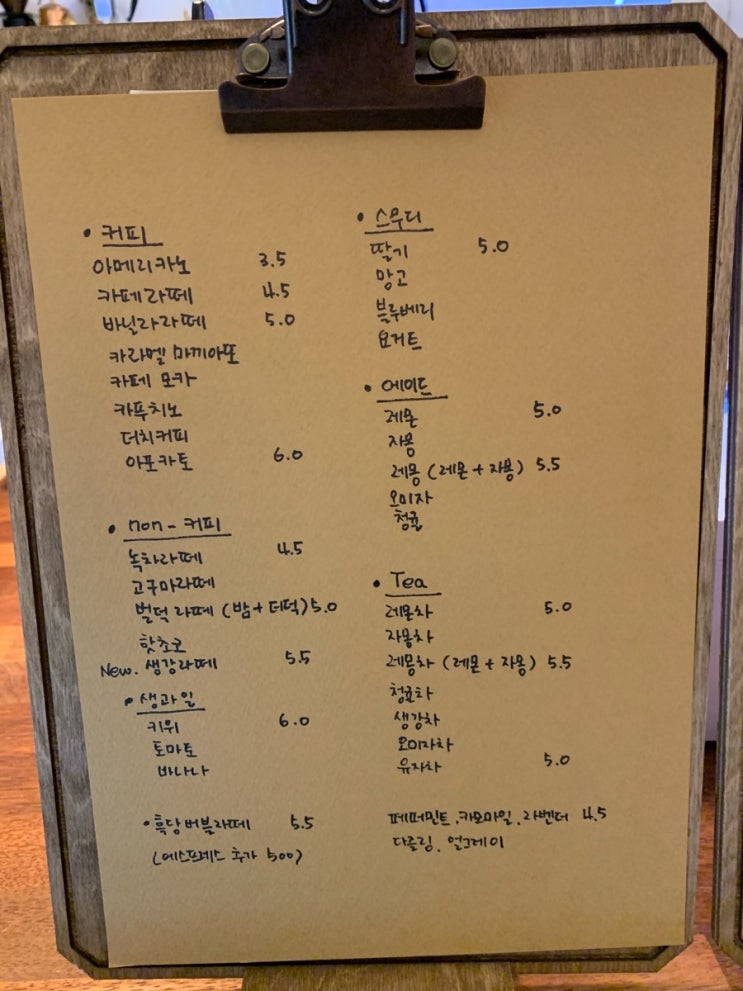 • 커피
아메리카노 3.5
카페라떼 4.5
바닐라라떼 5.0
카라멜 마끼아또
카페 모카
카푸치노
더치커피
아포카토 6.0
• non-커피
녹차라떼 4.5
고구마라떼
벌떡라떼 (밤+더덕) 5.0
핫초코
New. 생강라떼 5.5
• 생과일
키위 6.0
토마토
바나나
• 흑당버블라떼 5.5
(에스프레스 추가 500)
• 스무디
딸기 5.0
망고
블루베리
요거트
• 에이드
레몬 5.0
자몽
레몽 (레몬+자몽) 5.5
오미자
청귤
• Tea
레몬차 5.0
자몽차
레몽차 (레몬+자몽) 5.5
청귤차
생강차
오미자차
유자차 5.0
페퍼민트, 카모마일, 라벤더 4.5
다즐링, 얼그레이